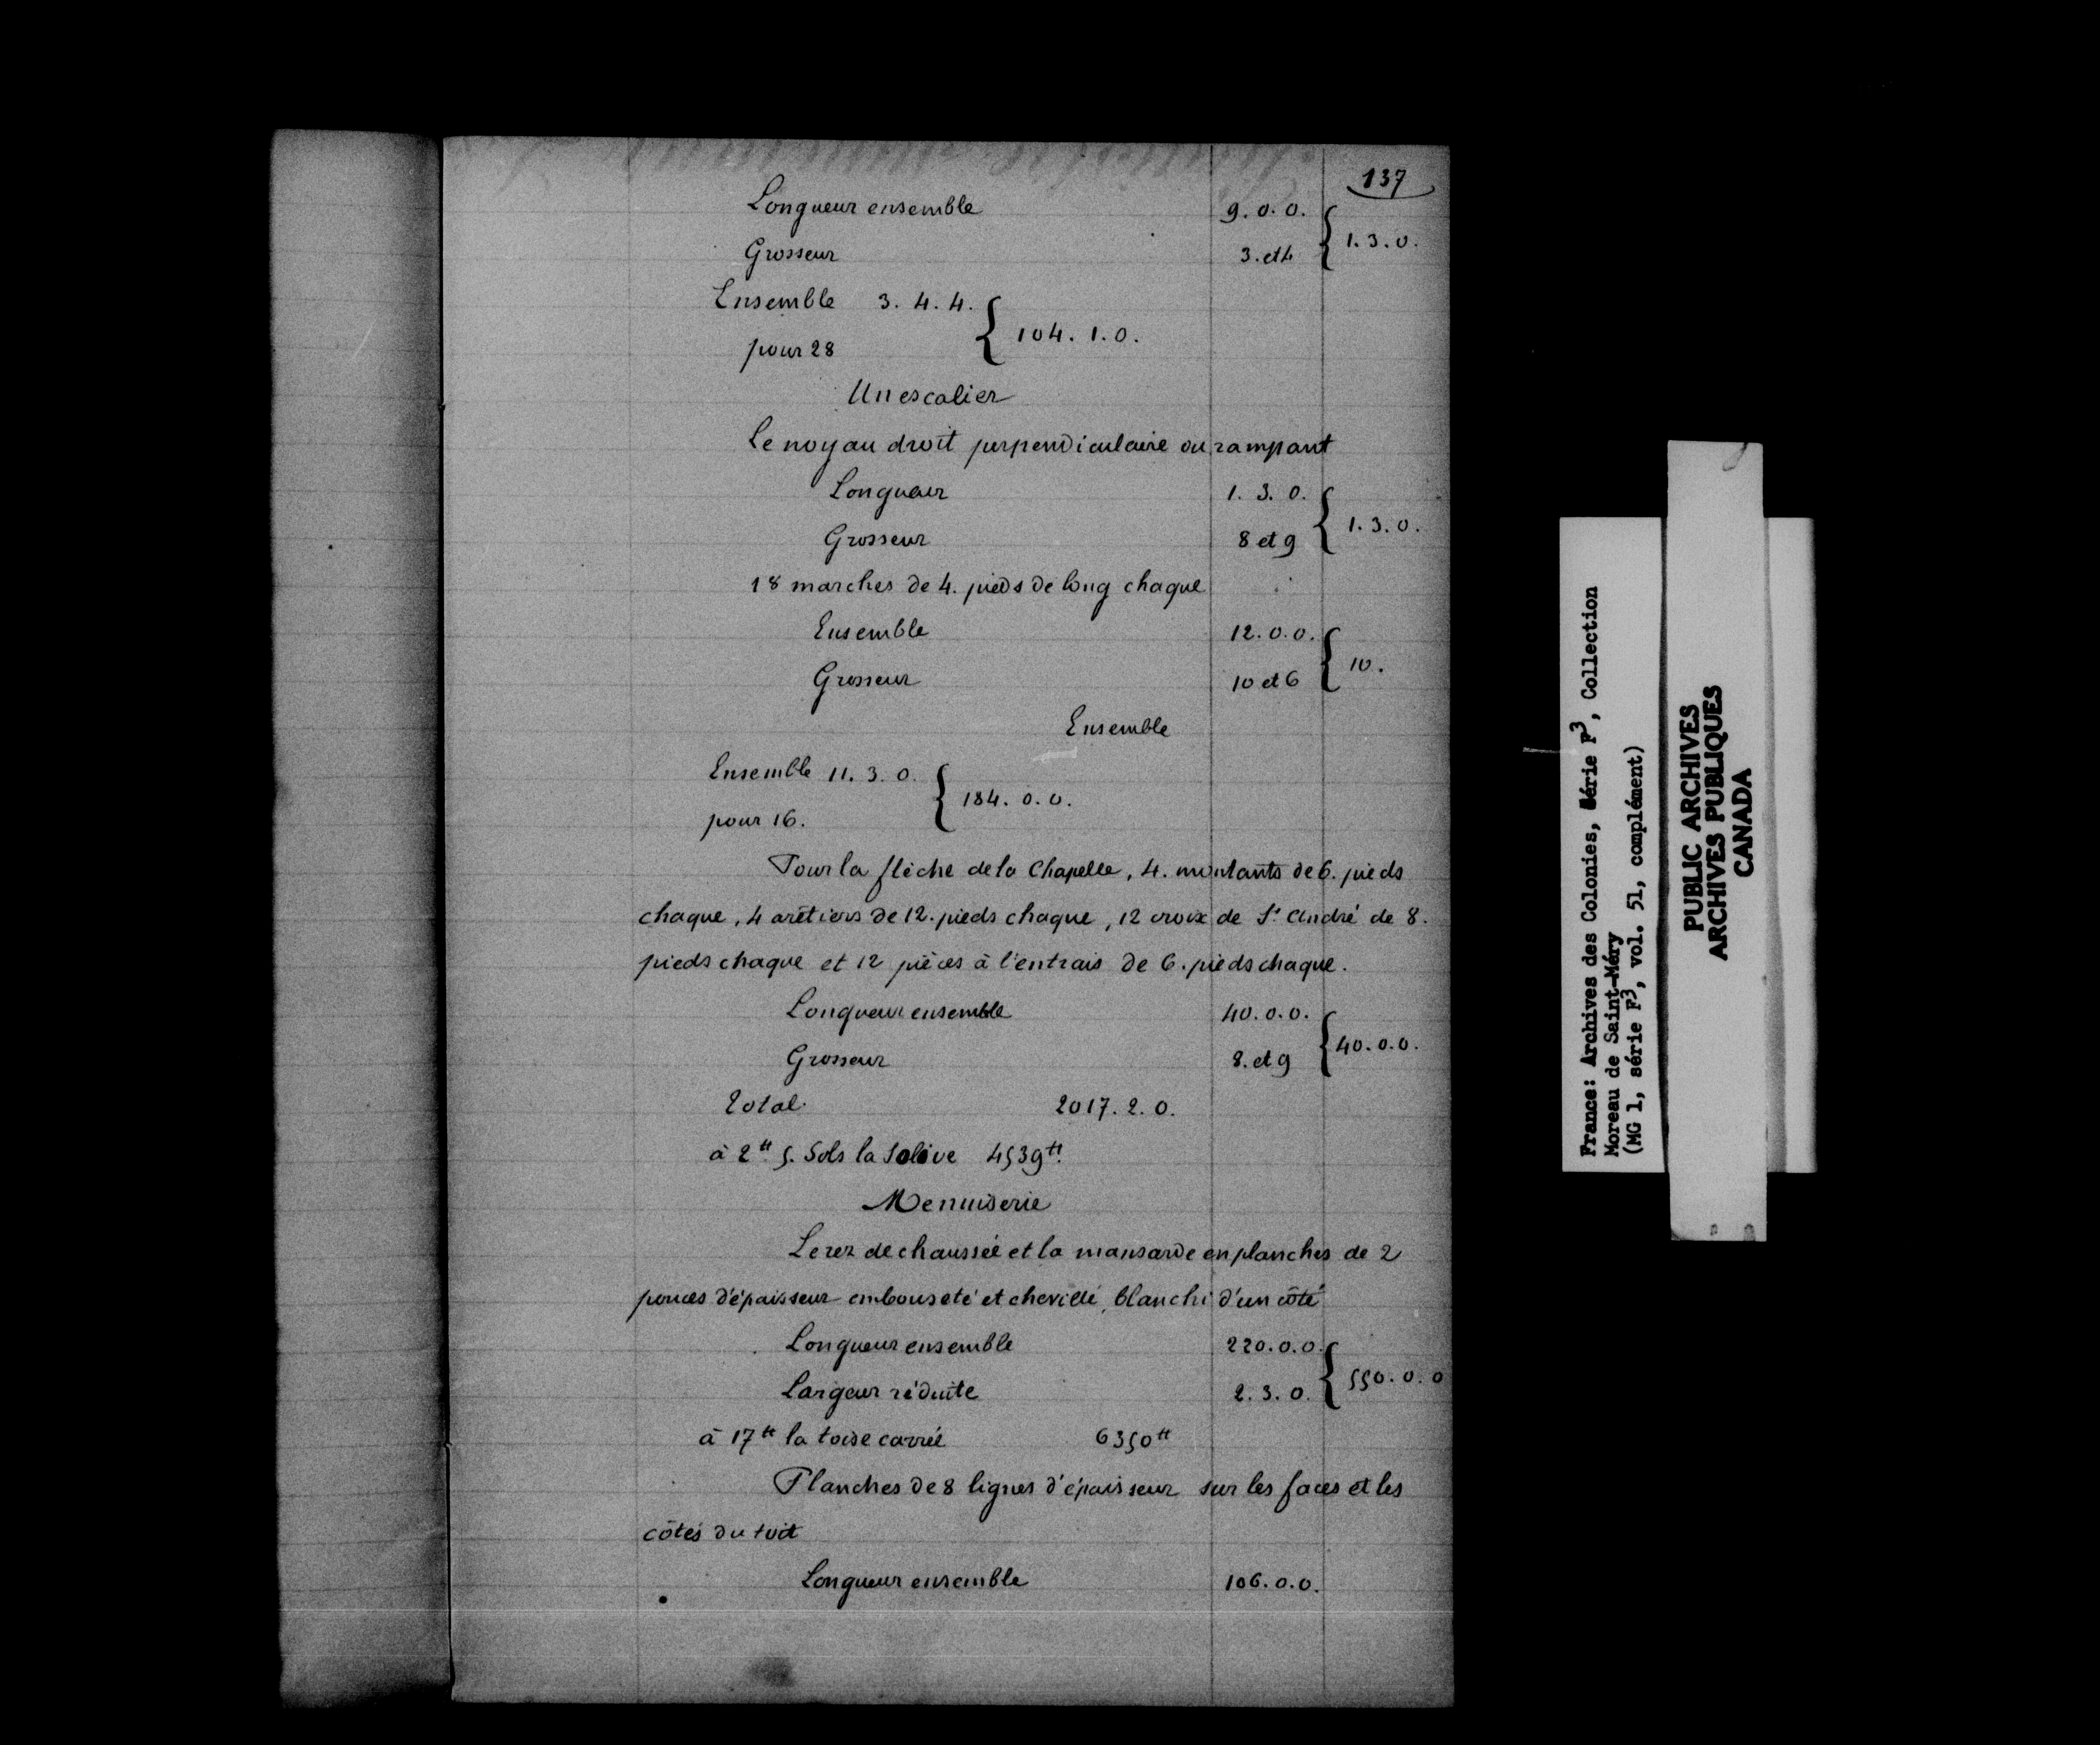 137
Longueur ensemble 9.0.0.
Grosseur 3. et 4 { 1.3.0.
Ensemble 3.4.4.
pour 28 { 104.1.0.
Un escalier
Le noyau droit perpendiculaire ou rampant
Longueur 1.3.0.
Grosseur 8 et 9 { 1.3.0.
18 marches de 4. pieds de long chaque
Ensemble 12.0.0.
Grosseur 10 et 6 { 10.
Ensemble
Ensemble 11.3.0.
pour 16. { 184.0.0.
Pour la flèche de la Chapelle, 4. montants de 6. pieds
chaque, 4 arêtiers de 12. pieds chaque, 12 croix de St André de 8.
pieds chaque et 12 pièces à l'entrais de 6. pieds chaque.
Longueur ensemble 40.0.0.
Grosseur 8. et 9 { 40.0.0.
Total 2017.2.0.
à 2tt 5. Sols la Solive 4539tt.
Menuiserie
Le rez de chaussée et la mansarde en planches de 2
pouces d'épaisseur embouseté et chevillé, blanchi d'un côté
Longueur ensemble 220.0.0.
Largeur réduite 2.3.0. { 550.0.0
à 17tt la toise carrée 6350tt
Planches de 8 lignes d'épaisseur sur les faces et les
côtés du toit
Longueur ensemble 106.0.0.
France: Archives des Colonies, Série F3, Collection
Moreau de Saint-Méry
(MG 1, série F3, vol. 51, complément)
PUBLIC ARCHIVES
ARCHIVES PUBLIQUES
CANADA